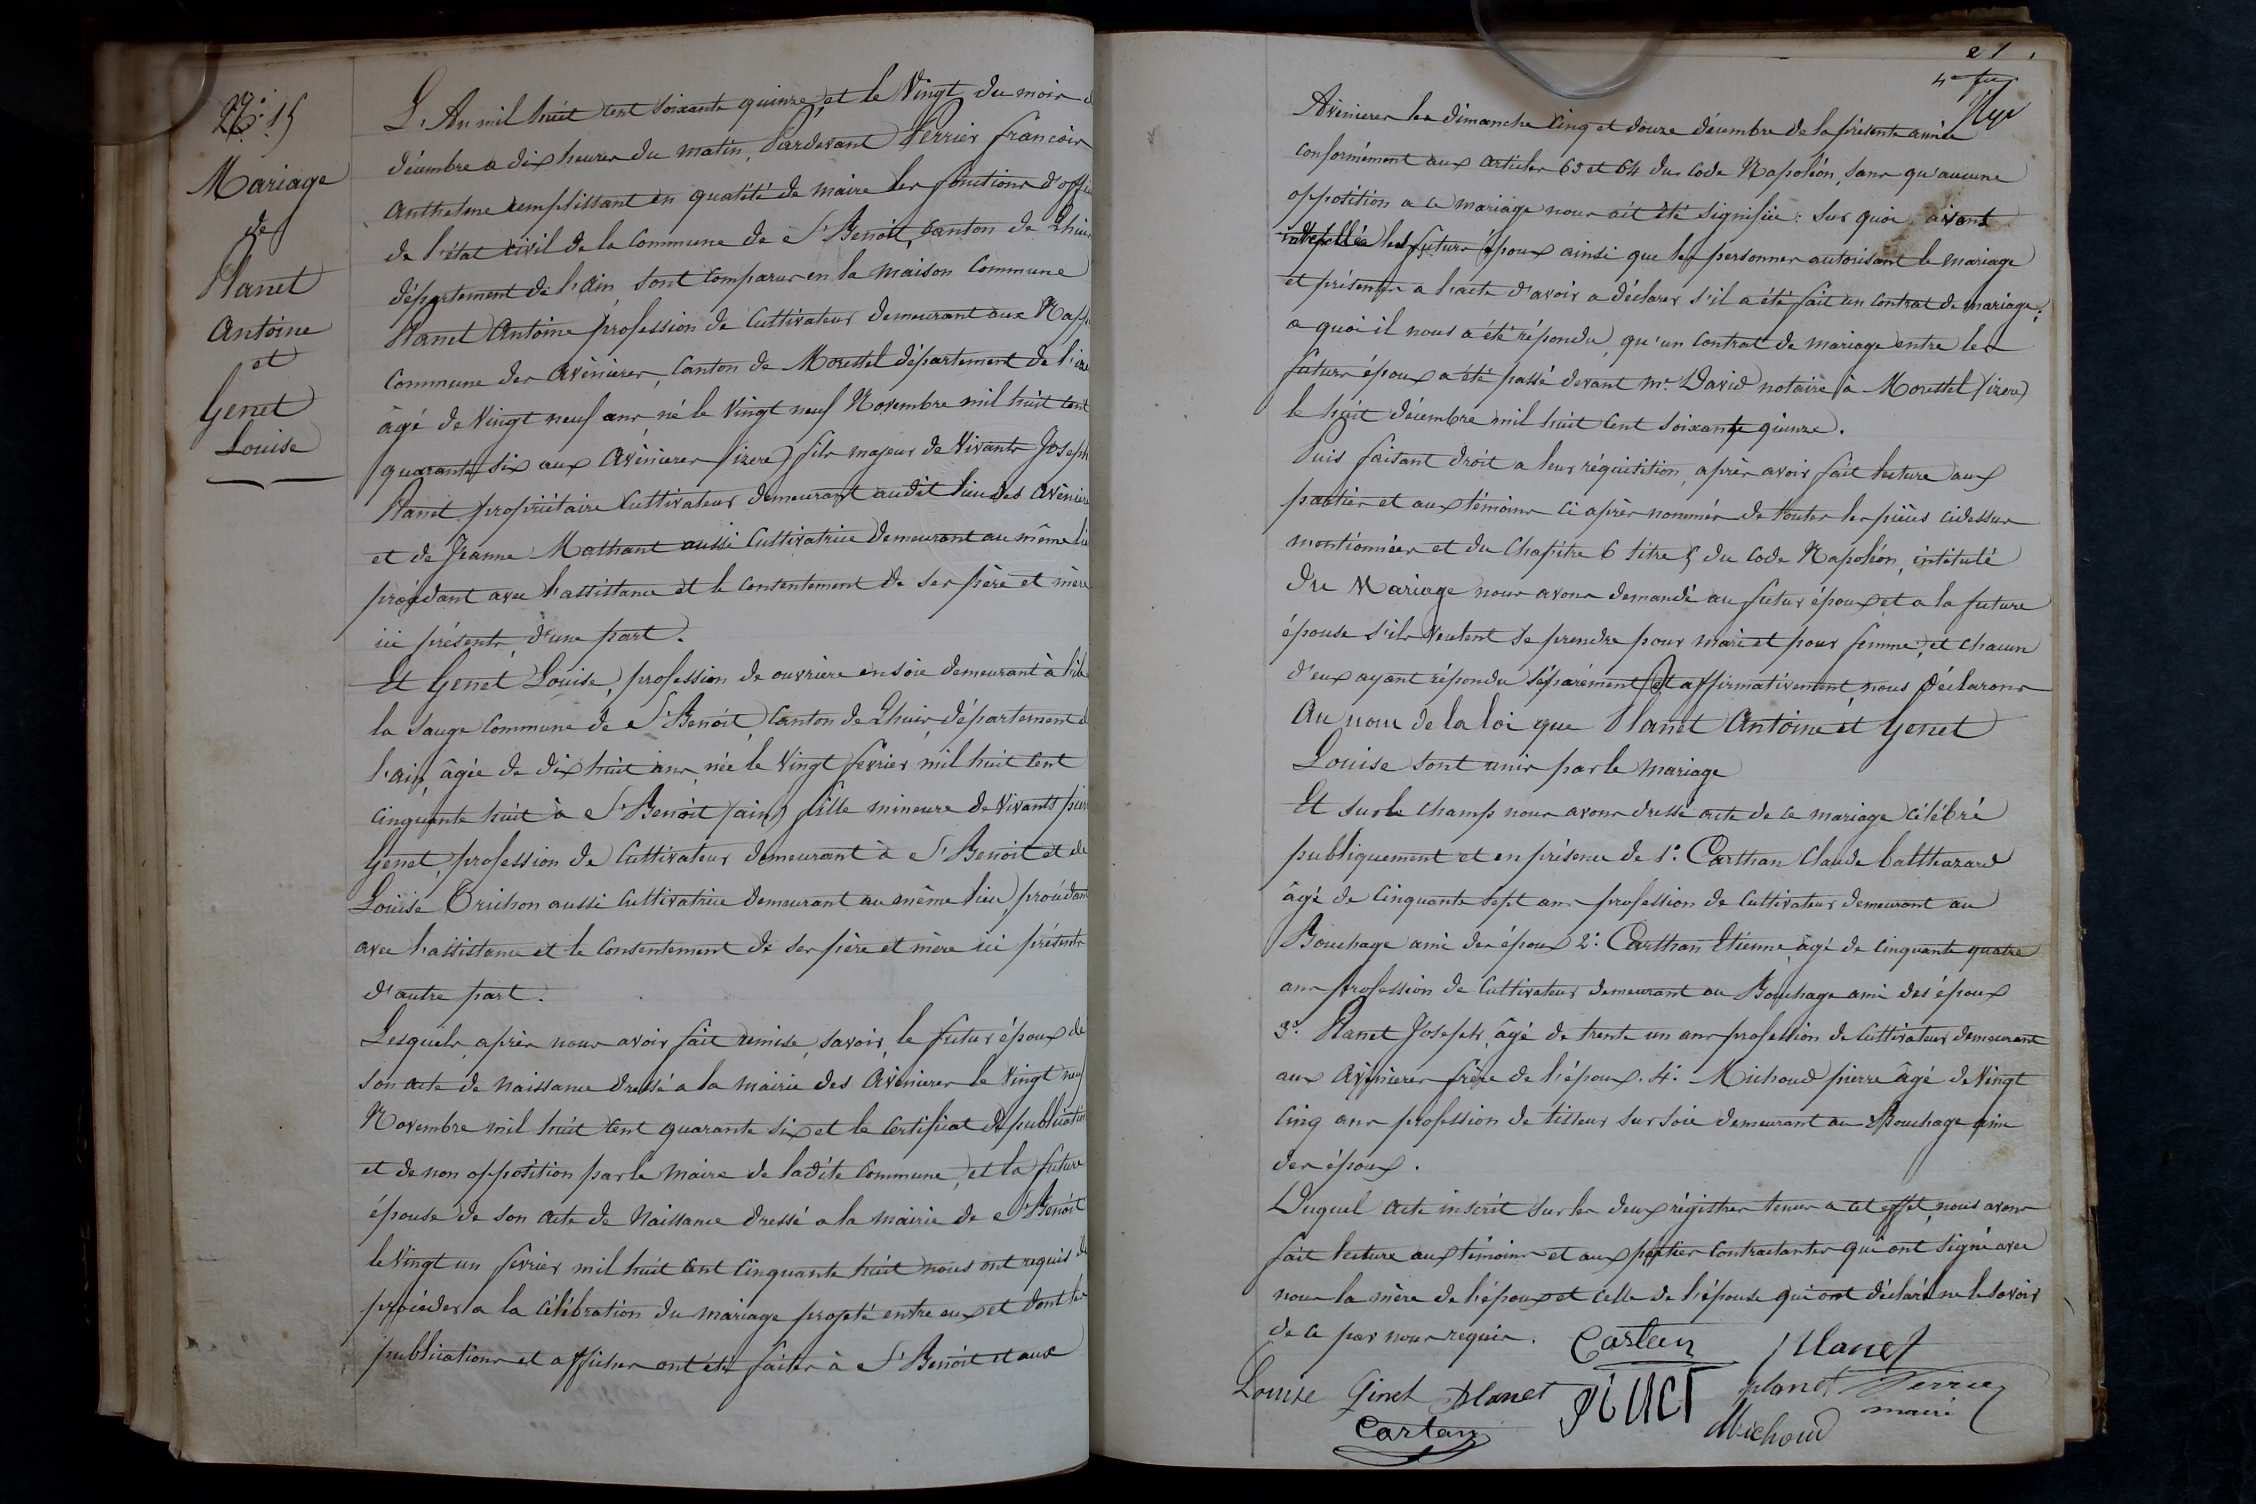 N° 15
Mariage
de
Planet
Antoine
et
Genet
Louise
L'An mil huit cent soixante quinze et le Vingt du mois d
décembre a dix heures du matin, Pardevant Perrier françois
Anthelme remplissant en qualité de maire les fonctions d'offi
de l'état civil de la Commune de St Benoit, canton de Lhuis
département de l'Ain, sont comparus en la maison Commune
Planet Antoine profession de Cultivateur demeurant aux
Commune des Avenieres, canton de Morestel département de l'ise
âgé de Vingt neuf ans, né le Vingt neuf Novembre mil huit cent
quarante six aux Avénieres (izere) fils majeur de Vivants Joseph
Planet propriétaire Cultivateur demeurant audit lieu des Avéniere
et de Jeanne Mathant aussi Cultivatrice demeurant au même li
procédant avec l'assistance et le consentement de ses père et mère
ici présents, d'une part.
Et Genet Louise, profession de ouvrière en soie demeurant à l'ile
la Sauge commune de St Benoit, canton de Lhuis, département d
l'ain, âgée de dix huit ans, née le Vingt fevrier mil huit cent
cinquante huit à St Benoit (ain) fille mineure de Vivants pier
Genet, profession de Cultivateur demeurant à St Benoit et de
Louise Trichon aussi Cultivatrice demeurant au même lieu, procédan
avec l'assistance et le consentement de ses père et mère ici présents
d'autre part.
Lesquels, après nous avoir fait remise, savoir, le futur époux de
son acte de naissance dressé a la mairie des Avénieres le Vingt neuf
Novembre mil huit cent quarante six et le Certificat de publication
et de non opposition par le maire de ladite Commune, et la future
épouse de son acte de Naissance dressé a la mairie de St Benoit
le Vingt un fevrier mil huit cent Cinquante huit nous ont requis de
procéder a la célébration du mariage projeté entre eux et dont les
publications et affiches ont été faites à St Benoit et aux
21
Avenieres les dimanche cinq et douze décembre de la présente année
conformément aux articles 63 et 64 du Code Napoléon, sans qu'aucune
opposition a ce mariage nous ait été signifiée : sur quoi, aivant
intepellée les futurs époux ainsi que les personnes autorisant le mariage
et présentes a l'acte d'avoir a déclarer s'il a été fait un contrat de mariage;
a quoi il nous a été répondu, qu'un contrat de mariage entre les
futurs époux a été passé devant me David notaire à Morestel (izere)
le huit décembre mil huit cent soixante quinze.
Puis faisant droit a leur réquisition, après avoir fait lecture aux
parties et aux témoins ci après nommés de toutes les pièces cidessus
mentionnées et du Chapitre 6 titre 5 du Code Napoléon, intitulé
Du Mariage nous avons demandé au futur époux et a la future
épouse s'ils veulent se prendre pour mari et pour femme; et chacun
d'eux ayant répondu séparément Et affirmativement nous déclarons
Au nom de la loi que Planet Antoine et Genet
Louise sont unis par le mariage
Et sur le champ nous avons dressé acte de ce mariage célébré
publiquement et en présence de 1° Carthan Claude balthazard
âgé de Cinquante sept ans profession de Cultivateur demeurant au
Bouchage ami des époux 2° Carthan Etienne, âgé de cinquante quatre
ans profession de Cultivateur demeurant au Bouchage ami des époux
3° Planet Joseph, âgé de trente un ans profession de Cultivateur demeurant
aux Avenieres frère de l'époux. 4° Michoud pierre âgé de Vingt
cinq ans profession de tisseur sur soie demeurant au Bouchage ami
des époux.
Duquel acte inscrit sur les deux régistres tenus a cet effet, nous avons
fait lecture aux témoins et aux parties contractantes qui ont signé avec
nous la mère de l'époux et celle de l'épouse qui ont déclaré ne le savoir
de ce par nous requis. Cartan J Planet
Louise Ginet Planet planet Perrier
maire
Cartan Michoud